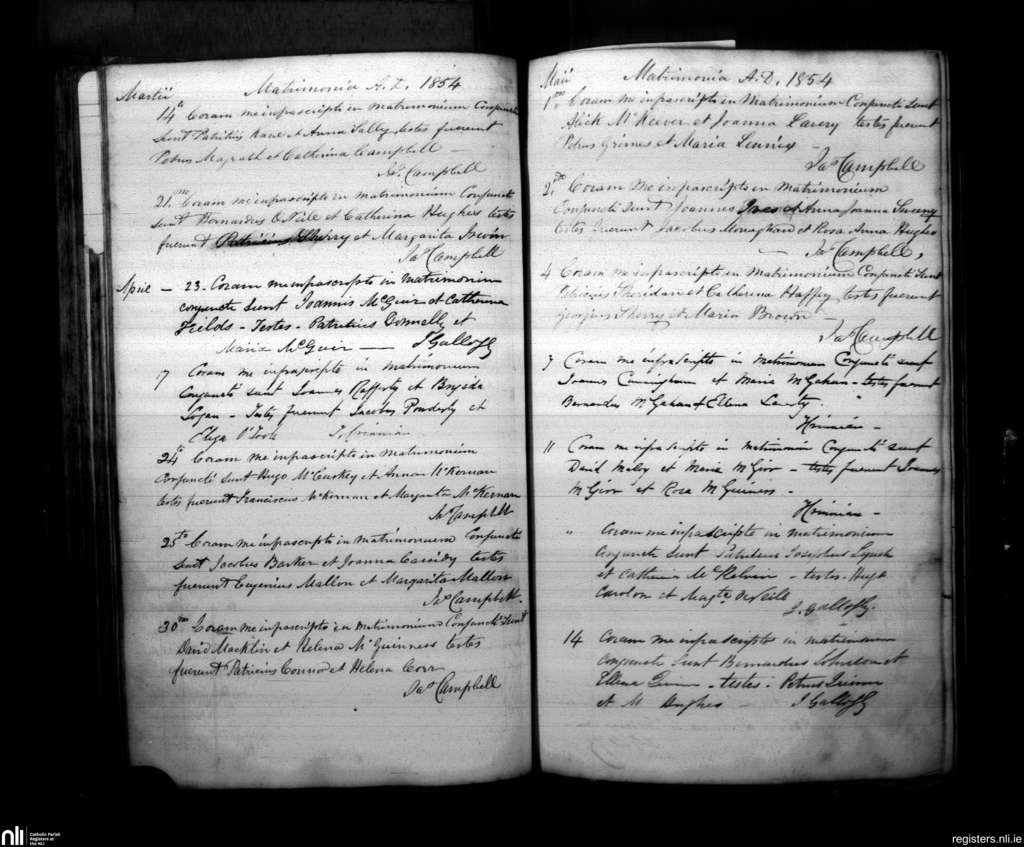 Matrimonia A.D. 1854
Martii
14a Coram me infrascripto in Matrimonium Conjuncti
Sunt Patritius Kane et Anna Lally testes fuerunt
Petrus Magrath et Catherina Campbell —
Jas. Campbell
21mo Coram me infrascripto in Matrimonium Conjuncti
Sunt Bernardus O'Neile et Catherina Hughes testes
fuerunt Sherry et Margarita
Jas Campbell
April — 23. Coram me infrascripto in Matrimonium
conjuncte sunt Joannis McGuir et Catherina
Fields - Testes - Patritius Donnelly et
Maria McGuir —
17 Coram me infrascripto in matrimonium
Conjuncte sunt Joannes Rafferty et
Logan - Testes fuerunt Jacobus Powderly et
Eliza O'Toole
24a Coram me infrascripto in Matrimonium
conjuncti Sunt Hugo McCuskey et Anna McKernan
testes fuerunt Franciscus McKernan et Margarita McKernan
Jas Campbell
25to Coram me infrascripto in matrimonium Conjuncti
Sunt Jacobus Barker et Joanna Cassidy testes
fuerunt Eugenius Mallon et Margarita Mallon
Jas Campbell.
30mo Coram me infrascripto in Matrimonium Conjuncti Sunt
David Macklin et Helena McGuinness testes
fuerunt Patricius Connor et Helena Corr
Jas Campbell
Matrimonia A.D. 1854
Maii
1mo Coram me infrascripto in Matrimonium Conjuncti Sunt
Alick McKeever et Joanna Lavery testes fuerunt
Petrus Grimes et Maria Lennix —
Jas Campbell
2do Coram me infrascripto in Matrimonium
Conjuncti Sunt Joannes et Anna Joanna
testes fuerunt Jacobus Monaghan et Rosa Anna Hughes
— Jas Campbell,
4 Coram me infrascripto in Matrimonium Conjuncti Sunt
Sheridan et Catherina Haffey testes fuerunt
Georgius Sherry et Maria Brown —
Jas Campbell
Coram me infrascripto in Matrimonium Conjuncte sunt
Joannes Cunningham et Maria McGahan - testes fuerunt
Bernardus McGahan et Ellena
11 Coram me infrascripto in Matrimonium Conjuncte sunt
David et Maria - testes fuerunt Joannes
et Rosa McGuiness -
" Coram me infrascripto in matrimonium
conjuncte sunt Josephus Lynch
et Catherina McKelvin - testes - Hugh
Carolon et Magte O'Neile
14 Coram me infrascripto in matrimonium
conjuncte sunt Bernardus Johnston et
Ellena - testes - Petrus
et M Hughes —
nli Catholic Parish
Registers at
the NLI
registers.nli.ie